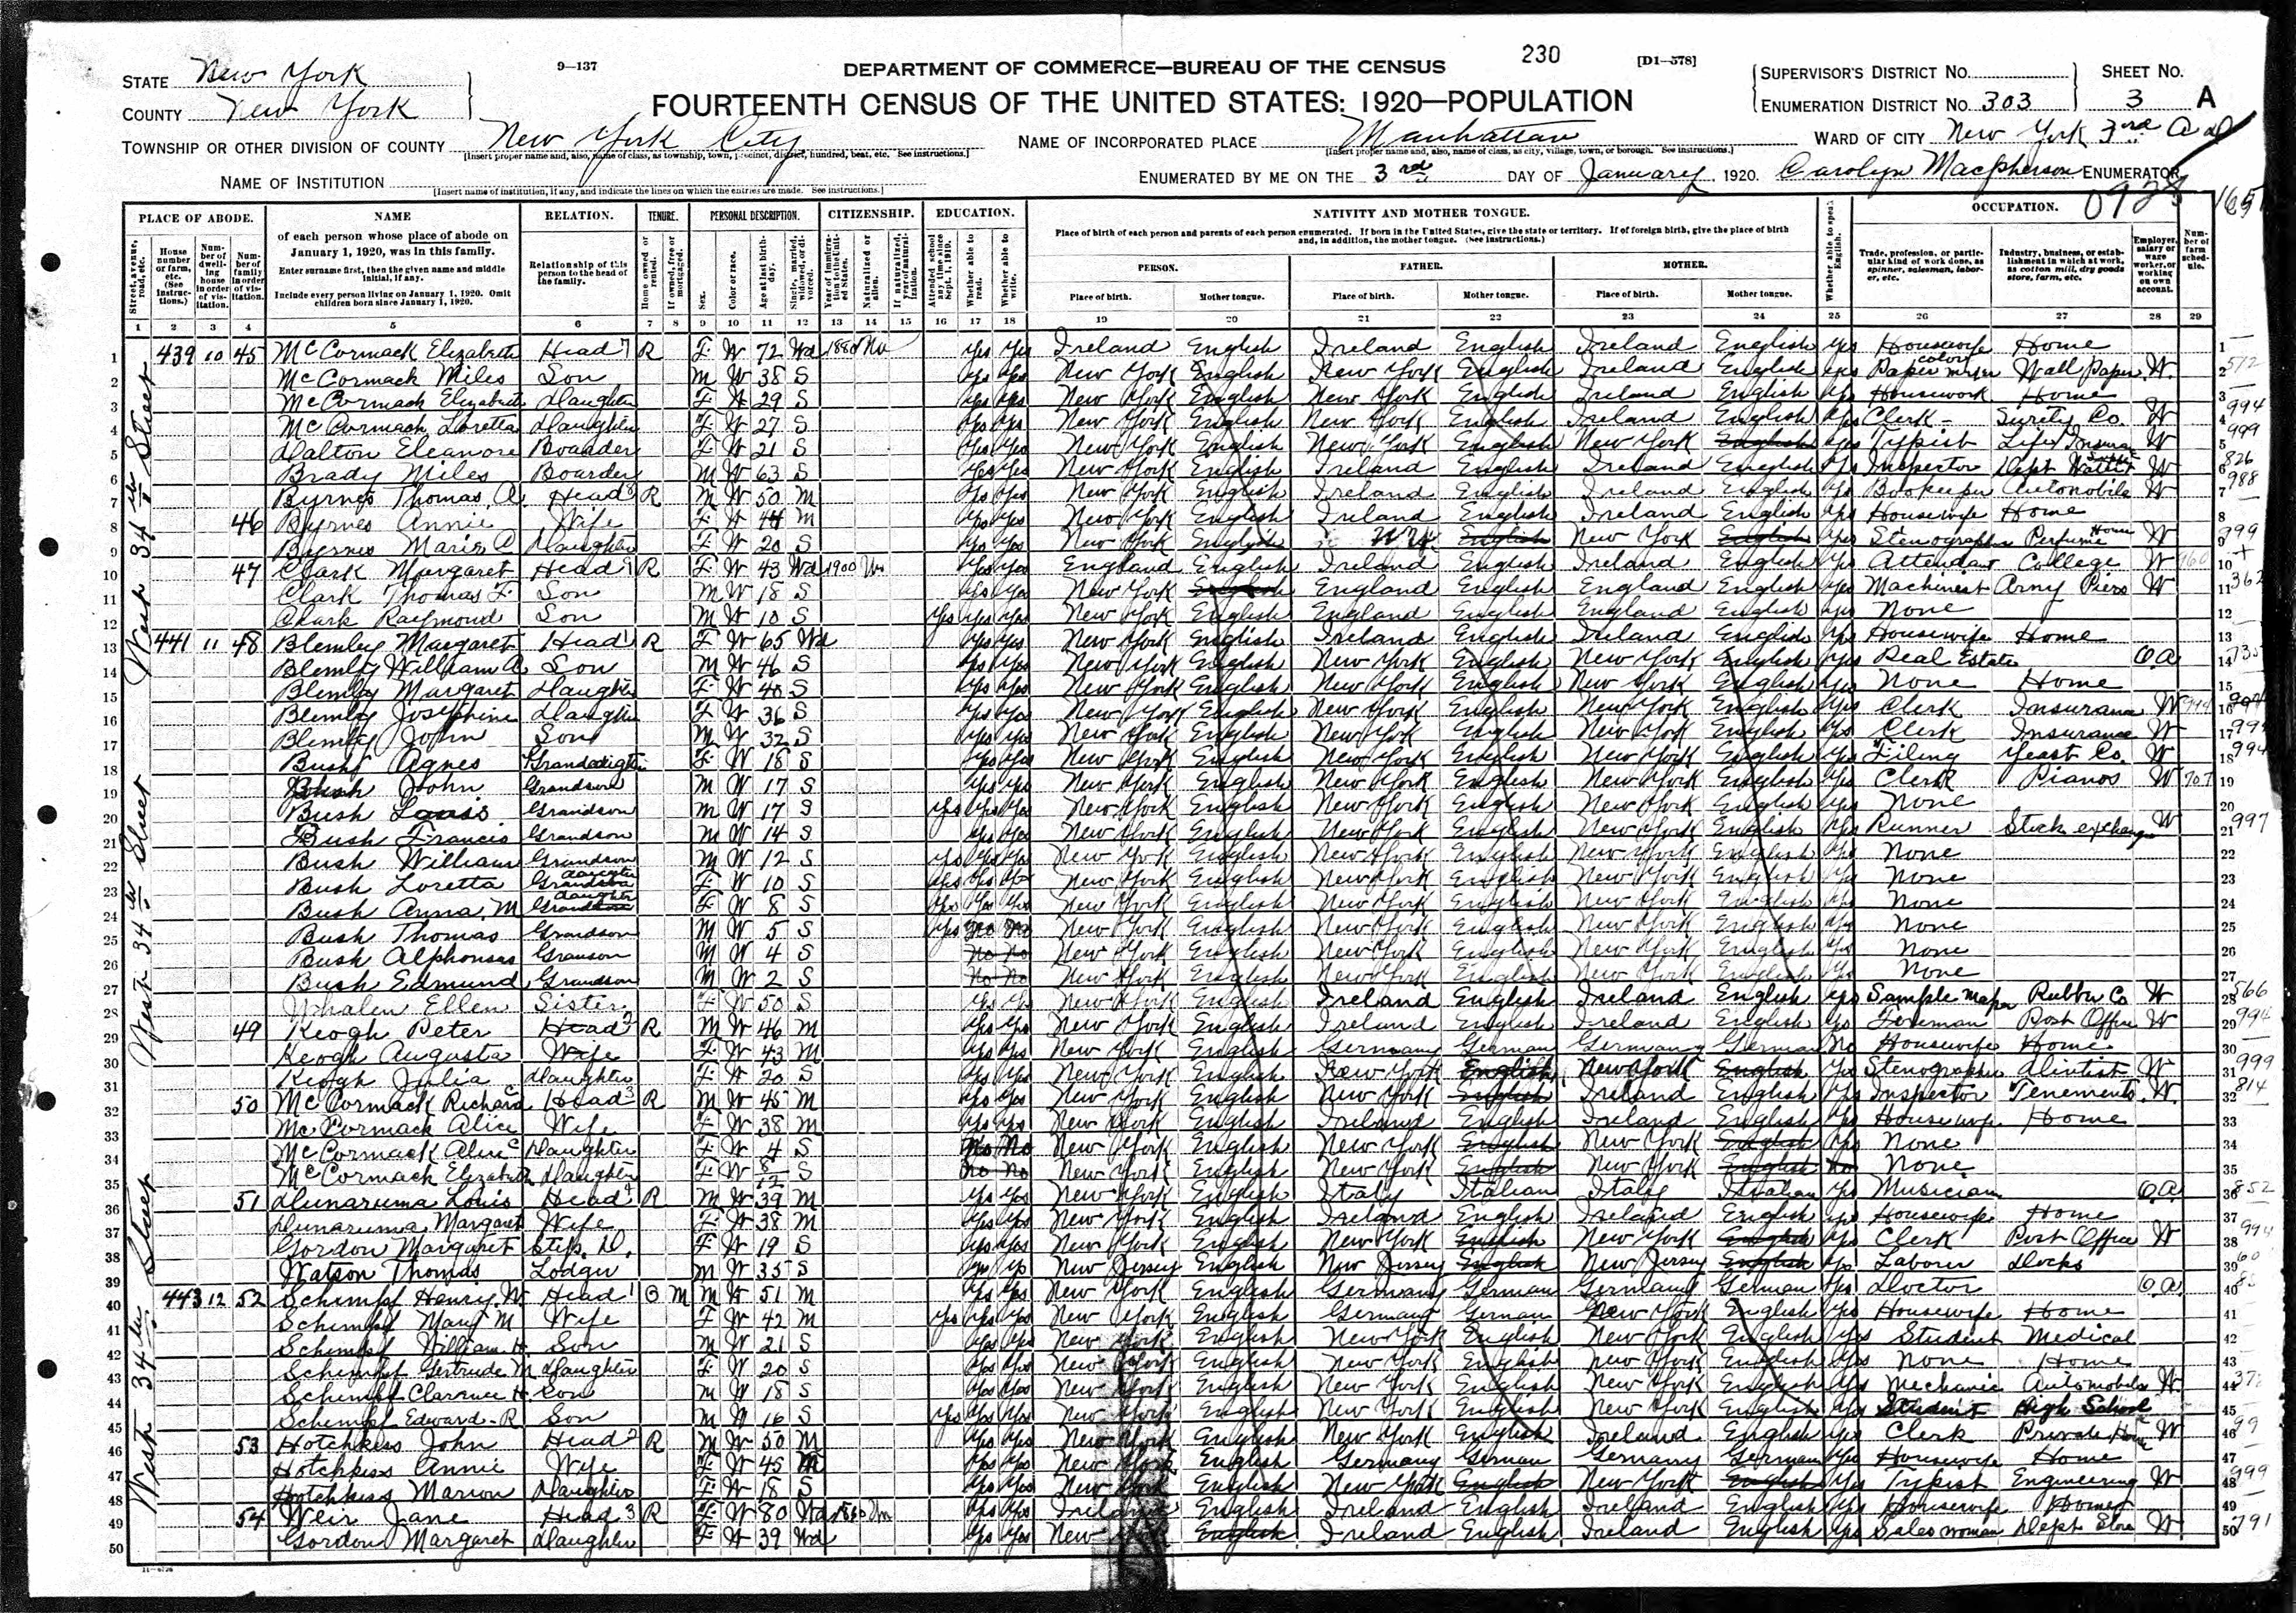 230
9—137
DEPARTMENT OF COMMERCE—BUREAU OF THE CENSUS
[D1—578]
STATE New York
COUNTY New York
FOURTEENTH CENSUS OF THE UNITED STATES: 1920—POPULATION
SUPERVISOR'S DISTRICT No.
ENUMERATION DISTRICT No. 303
SHEET No. 3 A
TOWNSHIP OR OTHER DIVISION OF COUNTY New York City
[Insert proper name and, also, name of class, as township, town, precinct, district, hundred, beat, etc. See instructions.]
NAME OF INCORPORATED PLACE Manhattan
[Insert proper name and, also, name of class, as city, village, town, or borough. See instructions.]
WARD OF CITY New York 3rd A D
NAME OF INSTITUTION
[Insert name of institution, if any, and indicate the lines on which the entries are made. See instructions.]
ENUMERATED BY ME ON THE 3rd DAY OF January, 1920. Carolyn Macpherson ENUMERATOR
PLACE OF ABODE. NAME RELATION. TENURE. PERSONAL DESCRIPTION. CITIZENSHIP. EDUCATION. NATIVITY AND MOTHER TONGUE. OCCUPATION.
of each person whose place of abode on January 1, 1920, was in this family.
Enter surname first, then the given name and middle initial, if any.
Include every person living on January 1, 1920. Omit children born since January 1, 1920.
Relationship of this person to the head of the family.
Place of birth of each person and parents of each person enumerated. If born in the United States, give the state or territory. If of foreign birth, give the place of birth and, in addition, the mother tongue. (See instructions.)
PERSON. FATHER. MOTHER.
Place of birth. Mother tongue. Place of birth. Mother tongue. Place of birth. Mother tongue.
Trade, profession, or particular kind of work done, as spinner, salesman, laborer, etc.
Industry, business, or establishment in which at work, as cotton mill, dry goods store, farm, etc.
Employer, salary or wage worker, or working on own account.
Number of farm schedule.
1 2 3 4 5 6 7 8 9 10 11 12 13 14 15 16 17 18 19 20 21 22 23 24 25 26 27 28 29
West 34th Street
1 439 10 45 McCormack Elizabeth Head R F W 72 Wd 1880 Na Yes Yes Ireland English Ireland English Ireland English Yes Housewife Home
2 McCormack Miles Son M W 38 S Yes Yes New York English New York English Ireland English Yes Paper color mixer Wall Paper W
3 McCormack Elizabeth Daughter F W 29 S Yes Yes New York English New York English Ireland English Yes Housework Home
4 McCormack Loretta Daughter F W 27 S Yes Yes New York English New York English Ireland English Yes Clerk Surety Co. W
5 Dalton Eleanore Boarder F W 21 S Yes Yes New York English New York English New York English Yes Typist Life Insura W
6 Brady Miles Boarder M W 63 S Yes Yes New York English Ireland English Ireland English Yes Inspector Dept Water W
7 Byrnes Thomas A. Head R M W 50 M Yes Yes New York English Ireland English Ireland English Yes Bookeeper Automobile W
8 46 Byrnes Annie Wife F W 44 M Yes Yes New York English Ireland English Ireland English Yes Housewife Home
9 Byrnes Marie C Daughter F W 20 S Yes Yes New York English N.Y. English New York English Yes Stenographer Perfume House W
10 47 Clark Margaret Head R F W 43 Wd 1900 Un Yes Yes England English Ireland English Ireland English Yes Attendant College W
11 Clark Thomas F. Son M W 18 S Yes Yes New York English England English England English Yes Machinest Army Piers W
12 Clark Raymond Son M W 10 S Yes Yes Yes New York English England English England English Yes None
13 441 11 48 Blemley Margaret Head R F W 65 Wd Yes Yes New York English Ireland English Ireland English Yes Housewife Home
14 Blemley William A. Son M W 46 S Yes Yes New York English New York English New York English Yes Real Estate O.A.
15 Blemley Margaret Daughter F W 40 S Yes Yes New York English New York English New York English Yes None Home
16 Blemley Josephine Daughter F W 36 S Yes Yes New York English New York English New York English Yes Clerk Insurance W
17 Blemley John Son M W 32 S Yes Yes New York English New York English New York English Yes Clerk Insurance W
18 Bush Agnes Grandaughter F W 18 S Yes Yes New York English New York English New York English Yes Filing Yeast Co. W
19 Bush John Grandson M W 17 S Yes Yes New York English New York English New York English Yes Clerk Pianos W
20 Bush Louis Grandson M W 17 S Yes Yes Yes New York English New York English New York English Yes None
21 Bush Francis Grandson M W 14 S Yes Yes New York English New York English New York English Yes Runner Stock exchange W
22 Bush William Grandson M W 12 S Yes Yes Yes New York English New York English New York English Yes None
23 Bush Loretta Grandaughter F W 10 S Yes Yes Yes New York English New York English New York English Yes None
24 Bush Anna. M Grandaughter F W 8 S Yes Yes Yes New York English New York English New York English Yes None
25 Bush Thomas Grandson M W 5 S Yes No No New York English New York English New York English Yes None
26 Bush Alphonsus Granson M W 4 S No No New York English New York English New York English Yes None
27 Bush Edmund Grandson M W 2 S No No New York English New York English New York English Yes None
28 Whalen Ellen Sister F W 50 S Yes Yes New York English Ireland English Ireland English Yes Sample Maker Rubber Co W
29 49 Keogh Peter Head R M W 46 M Yes Yes New York English Ireland English Ireland English Yes Foreman Post Office W
30 Keogh Augusta Wife F W 43 M Yes Yes New York English Germany German Germany German No Housewife Home
31 Keogh Julia Daughter F W 20 S Yes Yes New York English New York English New York English Yes Stenographer W
32 50 McCormack Richard Head R M W 45 M Yes Yes New York English New York English Ireland English Yes Inspector Tenements W
33 McCormack Alice Wife F W 38 M Yes Yes New York English Ireland English Ireland English Yes Housewife Home
34 McCormack Alice C Daughter F W 4 S No No New York English New York English New York English Yes None
35 McCormack Elizabeth Daughter F W 8/12 S No No New York English New York English New York English No None
36 51 Dunaruma Louis Head R M W 39 M Yes Yes New York English Italy Italian Italy Italian Yes Musician O.A.
37 Dunaruma Margaret Wife F W 38 M Yes Yes New York English Ireland English Ireland English Yes Housewife Home
38 Gordon Margaret Step. D. F W 19 S Yes Yes New York English New York English New York English Yes Clerk Post Office W
39 Watson Thomas Lodger M W 35 S Yes Yes New Jersey English New Jersey English New Jersey English Yes Laborer Docks
40 443 12 52 Schimpf Henry W. Head O M M W 51 M Yes Yes New York English Germany German Germany German Yes Doctor O.A.
41 Schimpf Mary M Wife F W 42 M Yes Yes Yes New York English Germany German New York English Yes Housewife Home
42 Schimpf William H. Son M W 21 S Yes Yes New York English New York English New York English Yes Student Medical
43 Schimpf Gertrude M Daughter F W 20 S Yes Yes New York English New York English New York English Yes None Home
44 Schimpf Clarence H. Son M W 18 S Yes Yes New York English New York English New York English Yes Mechanic Automobile W
45 Schimpf Edward. R Son M W 16 S Yes Yes Yes New York English New York English New York English Yes Student High School
46 53 Hotchkiss John Head R M W 50 M Yes Yes New York English New York English Ireland English Yes Clerk Private Home W
47 Hotchkiss Annie Wife F W 45 M Yes Yes New York English Germany German Germany German Yes Housewife Home
48 Hotchkiss Marion Daughter F W 18 S Yes Yes New York English New York English New York English Yes Typist Engineering W
49 54 Weir Jane Head R F W 80 Wd Yes Yes Ireland English Ireland English Ireland English Yes Housewife Home
50 Gordon Margaret Daughter F W 39 Wd Yes Yes New York English Ireland English Ireland English Yes Sales woman Dept Store W
11—6728